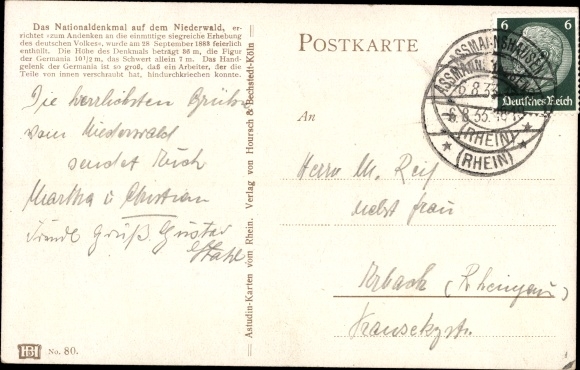 Das Nationaldenkmal auf dem Niederwald, er-
richtet »zum Andenken an die einmütige siegreiche Erhebung
des deutschen Volkes«, wurde am 28 September 1883 feierlich
enthüllt. Die Höhe des Denkmals beträgt 36 m, die Figur
der Germania 10½ m, das Schwert allein 7 m. Das Hand-
gelenk der Germania ist so groß, daß ein Arbeiter, der die
Teile von innen verschraubt hat, hindurchkriechen konnte.
Die herzlichsten Grüße
vom Niederwald
sendet Euch
Martha u Christian
Gruß. Gustav
Stahl
No. 80.
Astudin-Karten vom Rhein. Verlag von Hoursch & Bechstedt-Köln
POSTKARTE
An
Herrn M. Reif
nebst Frau
Erbach (Rheingau)
6 6
Deutsches Reich
ASSMANNSHAUSEN
(RHEIN)
(RHEIN)